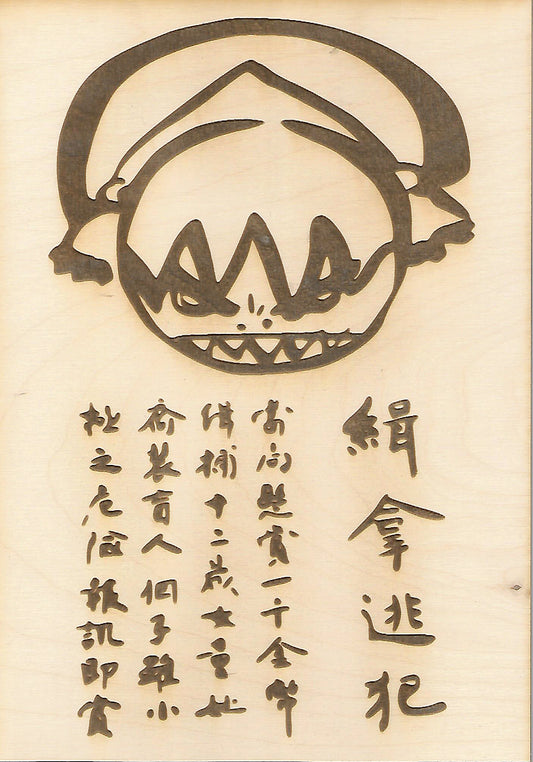 緝拿逃犯
懸賞一千金幣
捕十二歲女童她
喬裝盲人個子雖小
極之危險報訊即賞